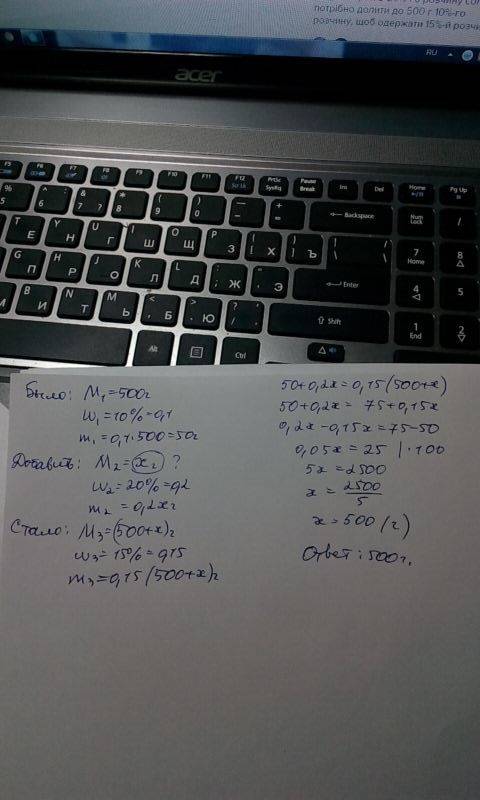 потрібно долити до 500 г 10%-го
розчину, щоб одержати 15%-й розчин
RU
acer
F5 F6 F7 F8 F9 F10 F11 F12 PrtSc SysRq Pause Break Ins Del Home Pg Up
% 5 ^ 6 & 7 ? * 8 ( 9 ) 0 — - + = Backspace Num Lock /
T Е Y Н U Г I Ш O Щ P З { [ Х } ] Ъ | \ / 7 Home 8
G П H Р J О K Л L Д : ; Ж " ' Э Enter 4 5
В И N Т M Ь < , Б > . Ю ? / Shift 1 End 2
Alt Ctrl
Было: M₁=500г
W₁=10%=0,1
m₁=0,1·500=50г
Добавить: M₂=xг ?
W₂=20%=0,2
m₂=0,2xг
Стало: M₃=(500+x)г
W₃=15%=0,15
m₃=0,15(500+x)г
50+0,2x=0,15(500+x)
50+0,2x=75+0,15x
0,2x-0,15x=75-50
0,05x=25 |·100
5x=2500
x=2500/5
x=500 (г)
Ответ: 500г.